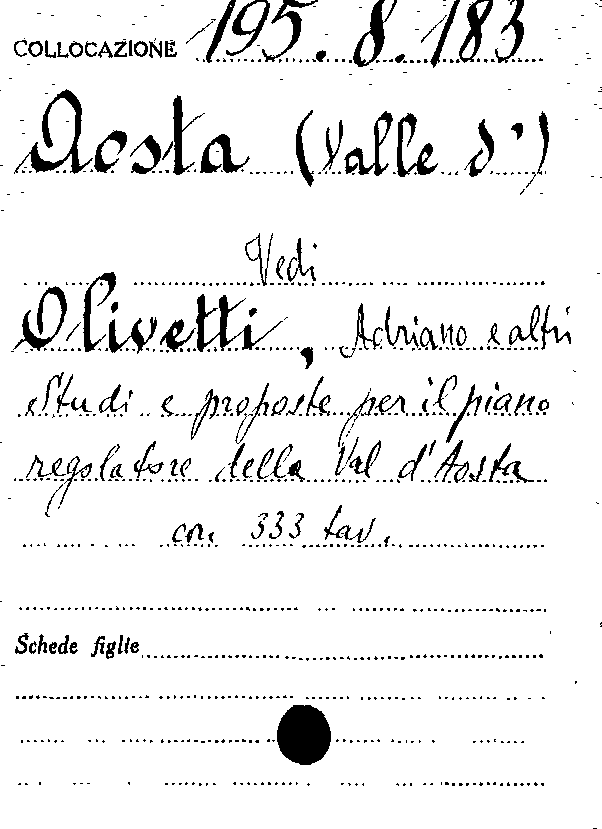 COLLOCAZIONE 195.8.183
Aosta (Valle d')
Vedi
Olivetti, Adriano e altri
Studi e proposte per il piano
regolatore della Val d'Aosta
con 333 tav.
Schede figlie